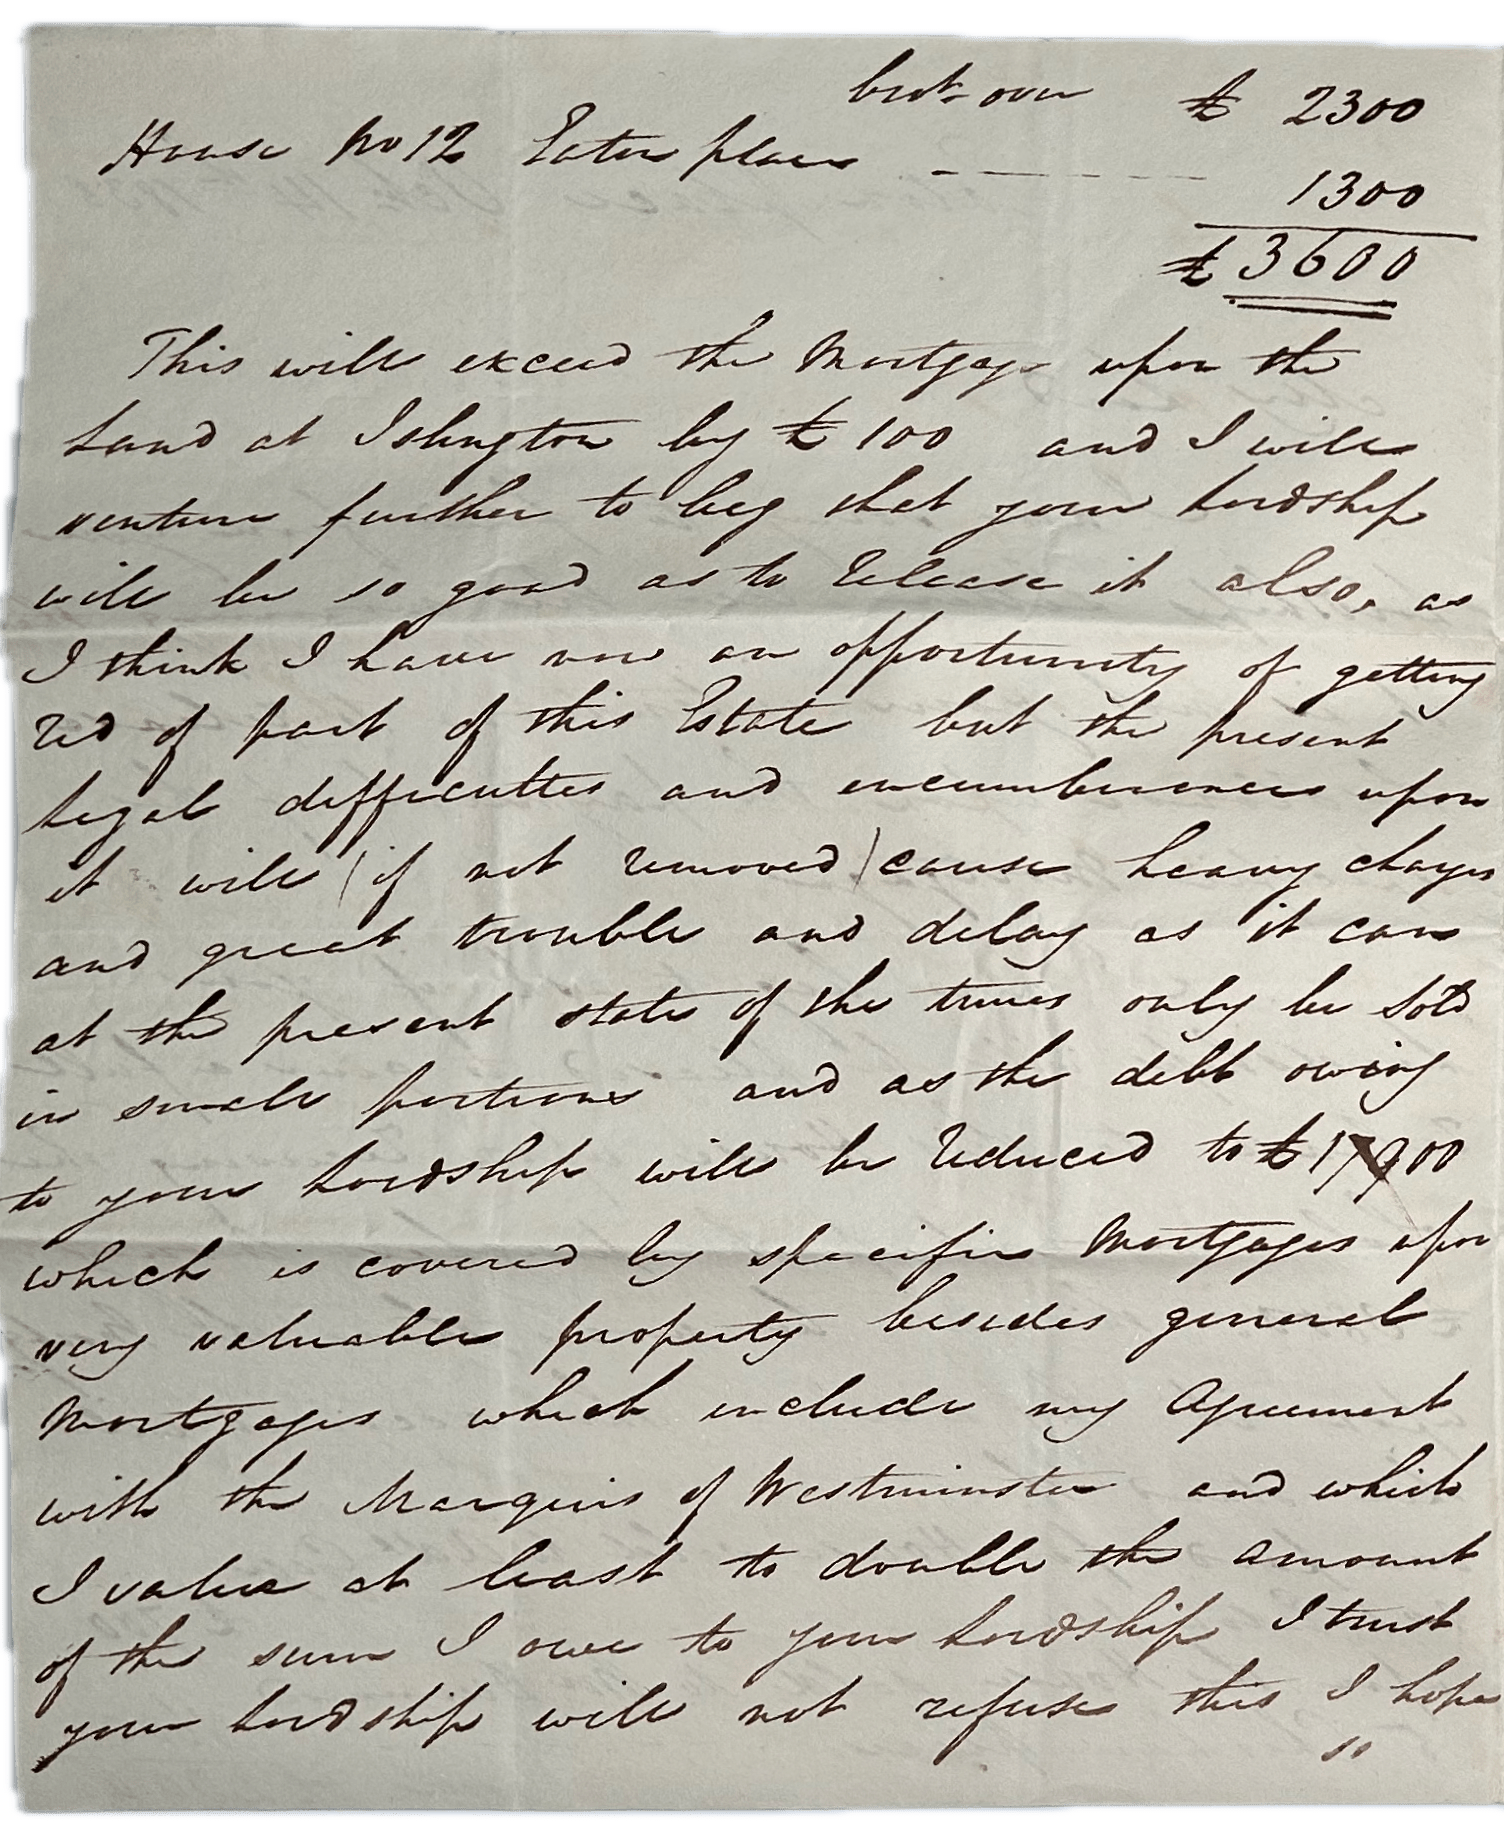 brot over £ 2300
House No 12 Eaton place - - - - 1300
£ 3600
This will exceed the Mortgage upon the
Land at Islington by £ 100 and I will
venture further to beg that your Lordship
will be so good as to release it also, as
I think I have now an opportunity of getting
rid of part of this Estate but the present
legal difficulties and incumberances upon
it will (if not removed) cause heavy charges
and great trouble and delay as it can
at the present state of the times only be sold
in small portions and as the debt owing
to your Lordship will be reduced to £
which is covered by specific Mortgages upon
very valuable property besides general
Mortgages which include my Agreement
with the Marquis of Westminster and which
I value at least to double the amount
of the sum I owe to your Lordship I trust
your Lordship will not refuse this I hope
"